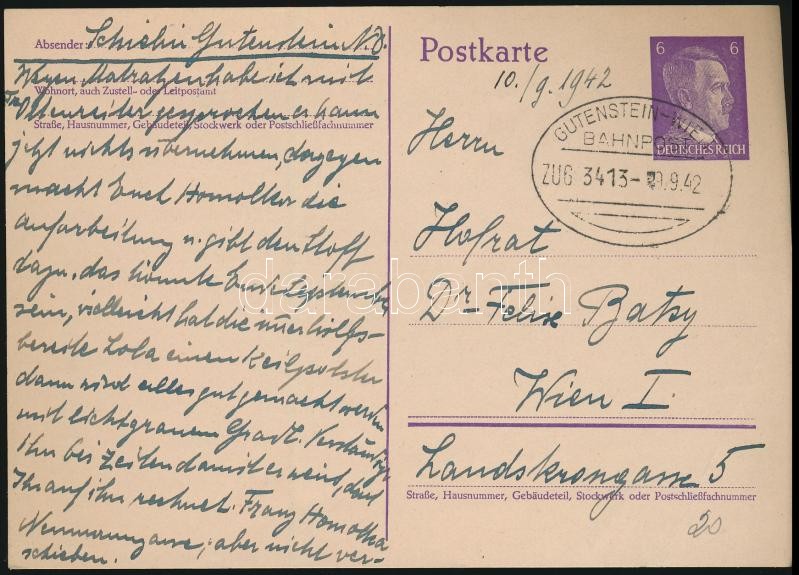 Absender: Schielin Gutenstein N.D.
Wegen Matratzen habe ich mit
Wohnort, auch Zustell- oder Leitpostamt
Ottenreiter gesprochen er kann
Straße, Hausnummer, Gebäudeteil, Stockwerk oder Postschließfachnummer
jetzt nichts übernehmen, dagegen
macht Euch Homolka die
aufarbeitung u. gibt den Stoff
dazu, das könnte Ende September
sein, vielleicht hat die immer hilfs-
bereite Lola einen Keilpolster
dann wird alles gut gemacht werden
mit lichtgrauem Gradl. Verständigt
ihn bei Zeiten damit er weiss, daß
Ihr auf ihn rechnet. Franz Homolka
aber nicht ver-
schieben.
Postkarte
10./9. 1942
6 6
DEUTSCHES REICH
GUTENSTEIN-WIEN
BAHNPOST
ZUG 3413- 9.42
Herrn
Hofrat
Dr. Felix Batsy
Wien I.
Landskrongasse 5
Straße, Hausnummer, Gebäudeteil, Stockwerk oder Postschließfachnummer
20
darabanth